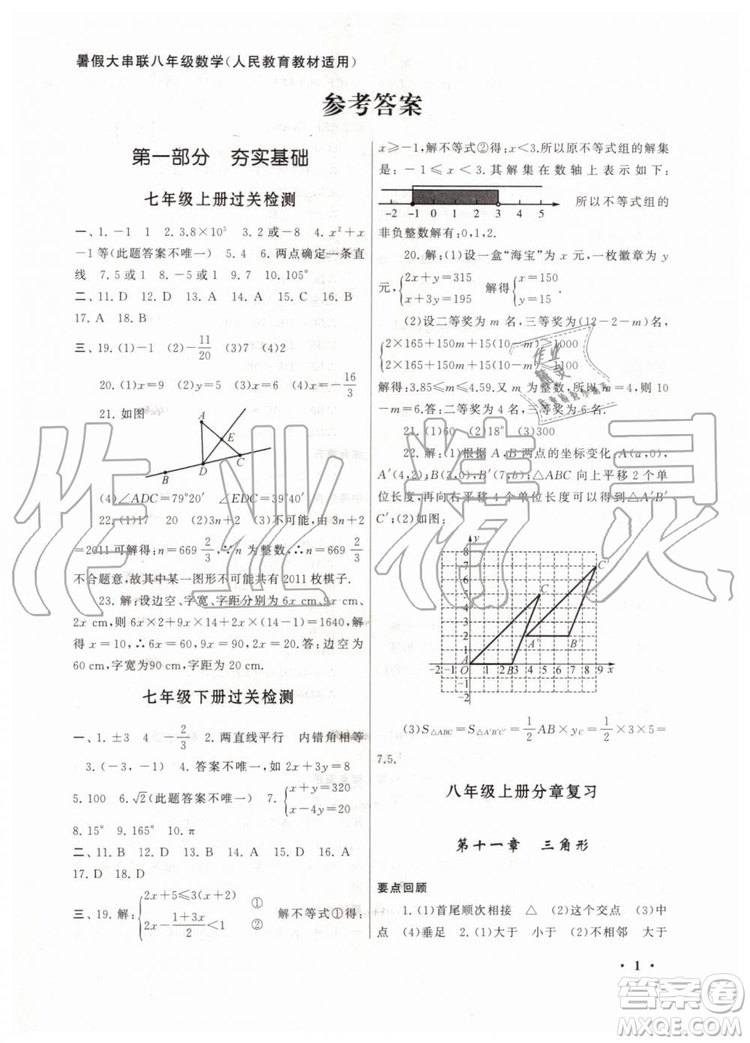 暑假大串联八年级数学(人民教育教材适用)
参考答案
第一部分 夯实基础
七年级上册过关检测
一、1.-1 1 2.3.8×10⁵ 3.2或-8 4.x²+x
-1等(此题答案不唯一) 5.4 6.两点确定一条直
线 7.5或11 8.1或7 9.10 10.105°
二、11.D 12.D 13.D 14.C 15.C 16.B
17.A 18.B
三、19.(1)-1 (2)-11/20 (3)7 (4)2
20.(1)x=9 (2)x=5 (3)x=1 (4)x=-16/3
21.如图
A
E
B D C
(4)∠ADC=79°20′ ∠EDC=39°40′
22.(1)17 20 (2)3n+2 (3)不可能,由 3n+2
=2011可解得:n=669 2/3 ∵n 为整数,∴n=669 2/3
不合题意,故其中某一图形不可能有 2011 枚棋子.
23.解:设边空、字宽、字距分别为 9x cm、6x cm、
2x cm,则 9x×2+6x×18+2x(18-1)=1640,解得:
x=10,∴9x=90,6x=60,2x=20.答:边空为
60 cm,字宽为60 cm,字距为 20 cm.
七年级下册过关检测
一、1.±3 4 -2/3 2.两直线平行 内错角相等
3.(-3,-1) 4.答案不唯一,如∠1=∠3等
5.100 6.√2(此题答案不唯一) 7.{x+y=320 x-4y=20
8.15° 9.15° 10.π
二、11.C 12.C 13.D 14.D 15.C 16.B 17.D
18.A
三、19.解:{2x+5≤3(x+2) ① 2x-(1+3x)/2<1 ② 解不等式①得:
x≥-1,解不等式②得:x<3.所以原不等式组的解集
是:-1≤x<3.其解集在数轴上表示如图:
-2 -1 0 1 2 3 4 5 所以不等式组的
非负整数解有:0,1,2.
20.解:(1)设一盒“海宝”为 x 元,一枚徽章为 y
元,{x+y=315 x+3y=195 解得{x=150 y=15.
(2)设二等奖为 m 名,三等奖为(12-2-m)名,
解得:3.85≤m≤4.59.又m为整数,所以m=4,10
-m=6.答:二等奖为4名,三等奖为6名.
21.(1)60 (2)18° (3)300
22.解:(1)根据 A、B 两点的坐标变化:A(a,0),
长度;再向右平移 4 个单位长度,得到△A′B′
C′;(2)如图:
y
8
7
6
5
4
3
2
1
C C′
A B
-2 -1 0 1 2 3 4 5 6 7 8 9 x
-1
-2
(3)S△ABC=S△A′B′C′=1/2 AB×yC=1/2×3×5=
7.5.
八年级上册分章复习
第十一章 三角形
要点回顾
1.(1)首尾顺次相接 △ (2)这个交点 (3)中
点 (4)垂足 2.(1)大于 小于 (2)不相邻 大于
· 1 ·
作业精灵
答案圈